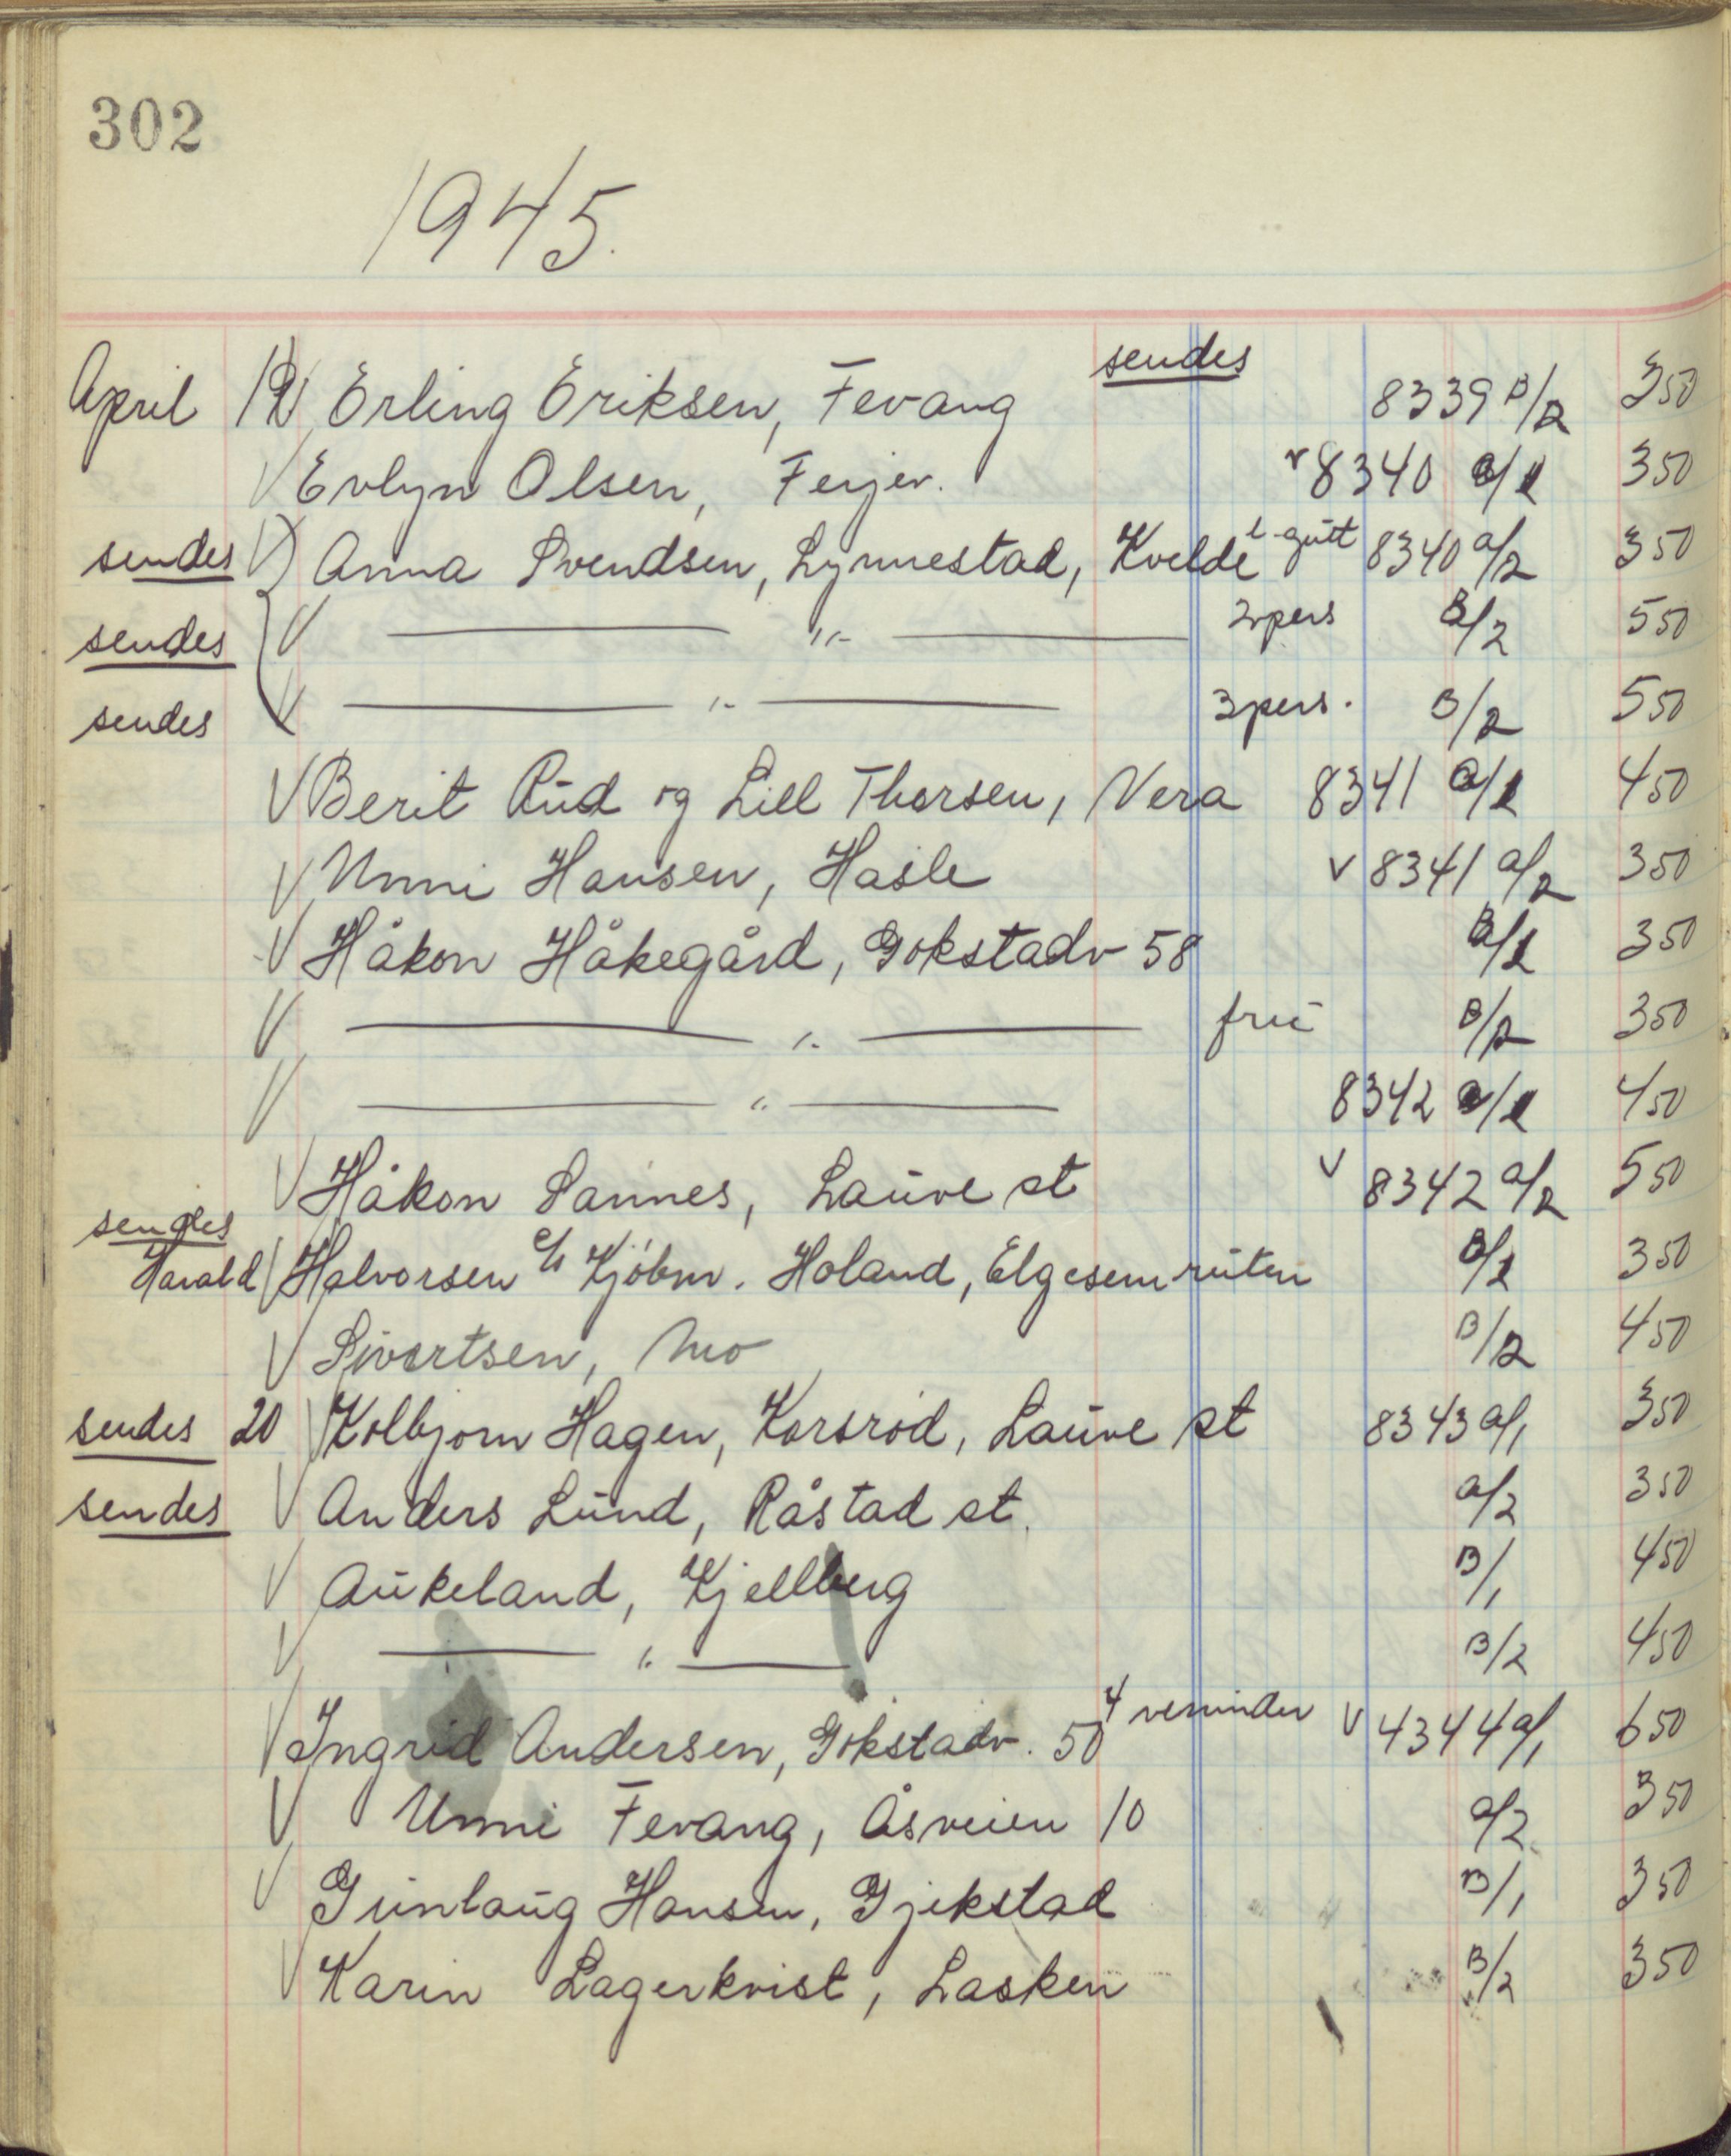 302
1945.
sendes
April 19 Erling Eriksen, Fevang 8339 B/2 350
V Evlyn Olsen, Ferjev. v 8340 a/1 350
sendes V Anna Svendsen, Lynnestad, Kvelde l. gutt 8340 a/2 350
sendes V —— " —— 2 pers B/2 550
sendes V —— " —— 3 pers. B/2 550
V Berit Rud og Lill Thorsen, Vera 8341 a/1 450
V Unni Hansen, Hasle v 8341 a/2 350
V Håkon Håkegård, Gokstadv 58 B/1 350
V —— " —— frue B/2 350
V —— " —— 8342 a/1 450
V Håkon Sannes, Lauve st v 8342 a/2 550
sendes
Harald V Halvorsen c/o Kjöbm. Holand, Elgesemruten B/1 350
V Sivertsen, Mo B/2 450
sendes 20 V Kolbjørn Hagen, Korsrød, Lauve st 8343 a/1 350
sendes V Anders Lund, Råstad st. a/2 350
V Aukeland, Kjellberg B/1 450
V —— " —— B/2 450
V Ingrid Andersen, Gokstadv. 50 4 veninder v 4344 a/1 650
V Unni Fevang, Åsveien 10 a/2 350
V Gunlaug Hansen, Gjekstad B/1 350
V Karin Lagerkvist, Lasken B/2 350